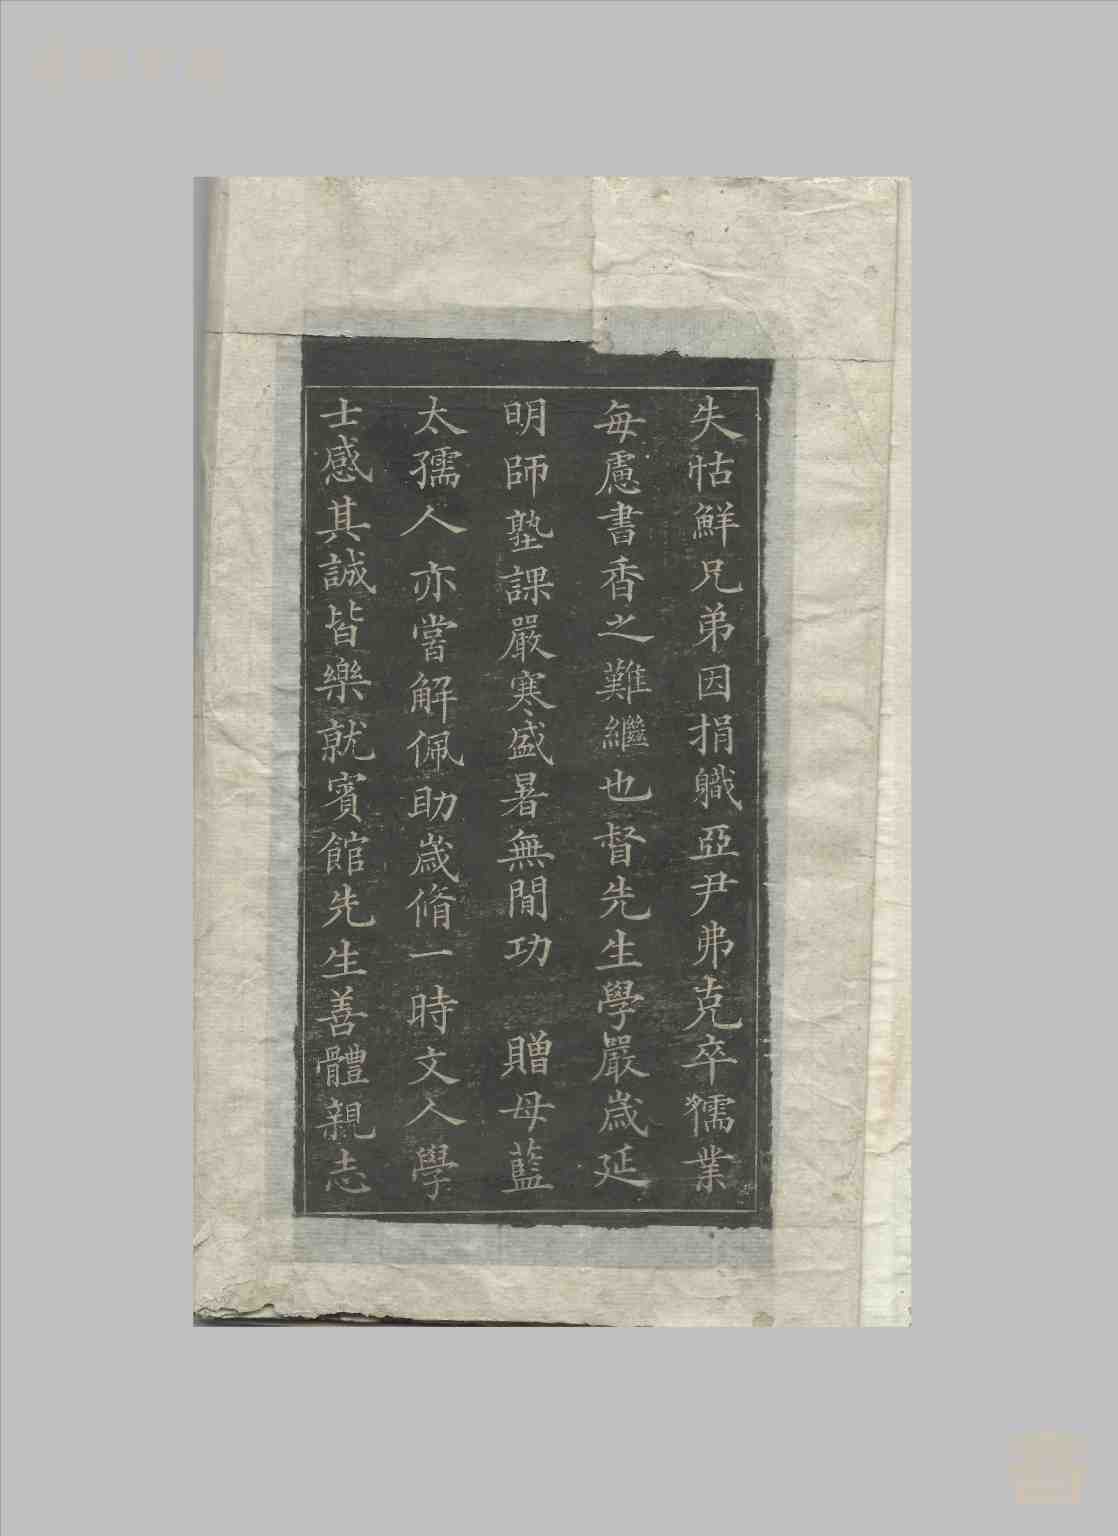 失怙鮮兄弟因捐職亞尹弗克卒獳業
每慮書香之難繼也督先生學嚴歳延
明師塾課嚴寒盛暑無閒功　贈母藍
太孺人亦嘗解佩助歳脩一時文人學
士感其誠皆樂就賓館先生善體親志